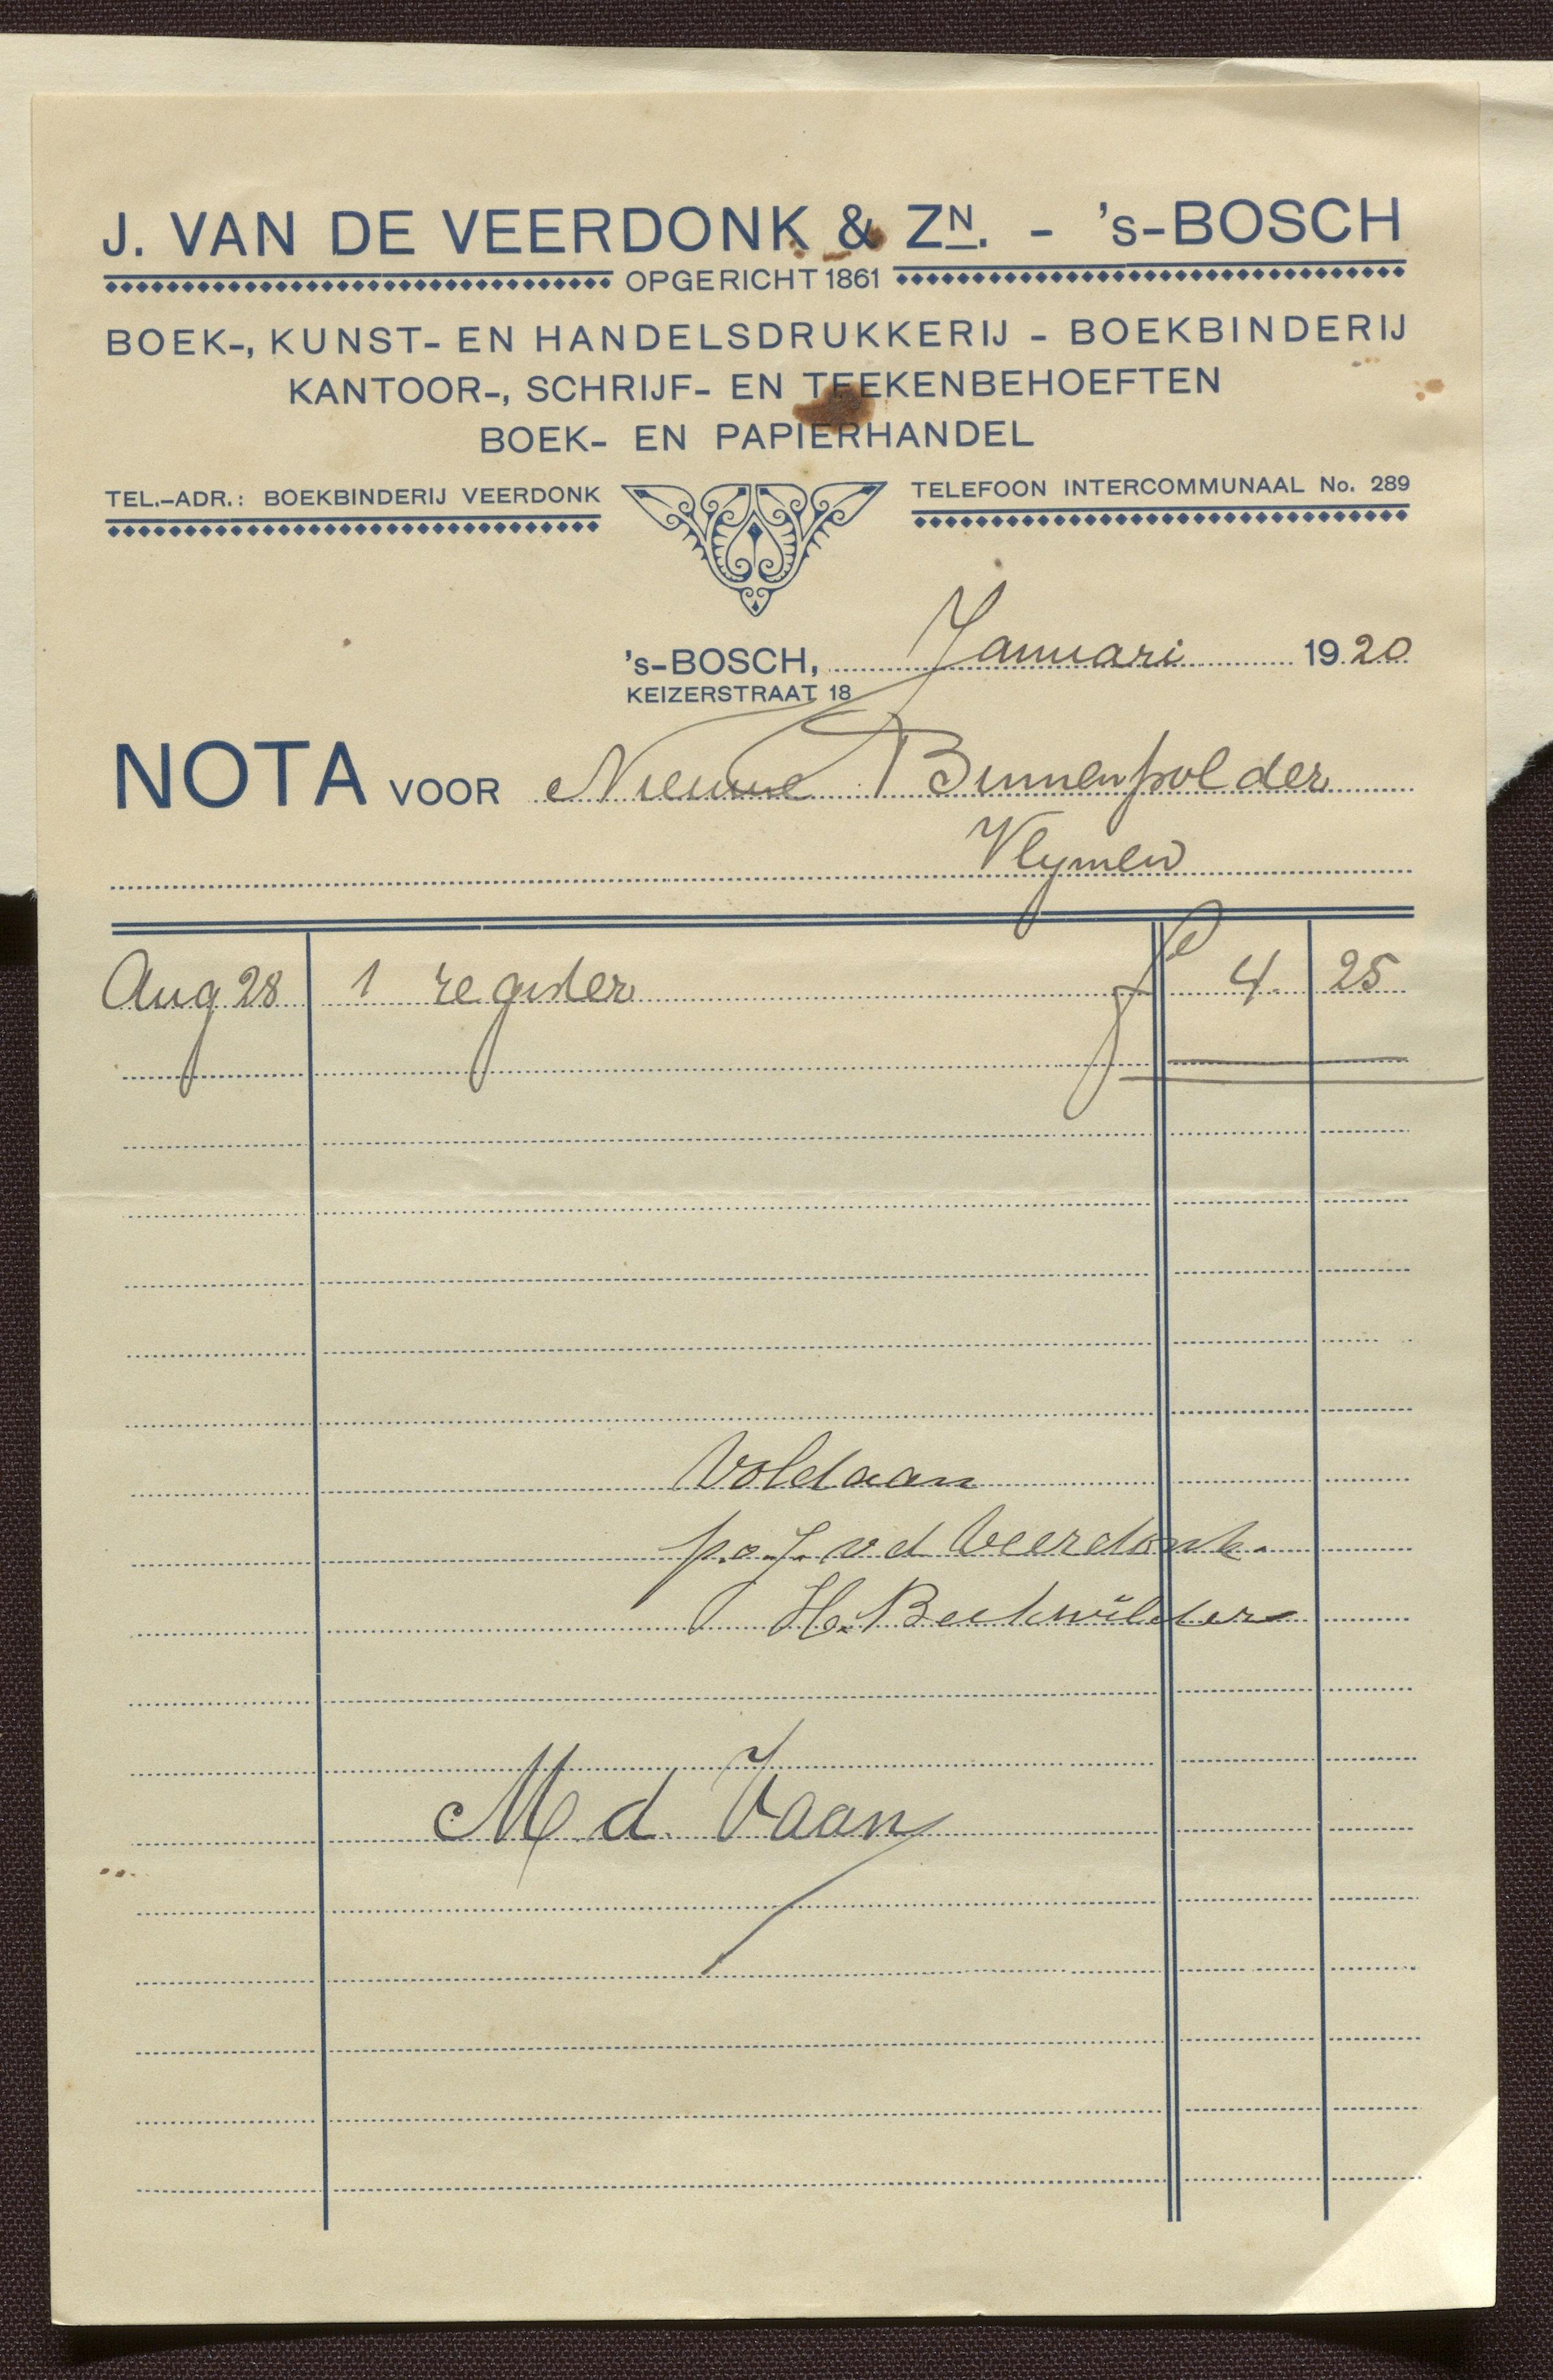 J. VAN DE VEERDONK & ZN. - 's-BOSCH
OPGERICHT 1861
BOEK-, KUNST- EN HANDELSDRUKKERIJ - BOEKBINDERIJ
KANTOOR-, SCHRIJF- EN TEEKENBEHOEFTEN
BOEK- EN PAPIERHANDEL
TEL.-ADR.: BOEKBINDERIJ VEERDONK
TELEFOON INTERCOMMUNAAL No. 289
's-BOSCH, Januari 1920
KEIZERSTRAAT 18
NOTA VOOR Nieuwe Binnenpolder
Vlymen
Aug 28 1 register f 4. 25
Voldaan
p.o. J. v d Veerdonk.
H.
M d. Vaan